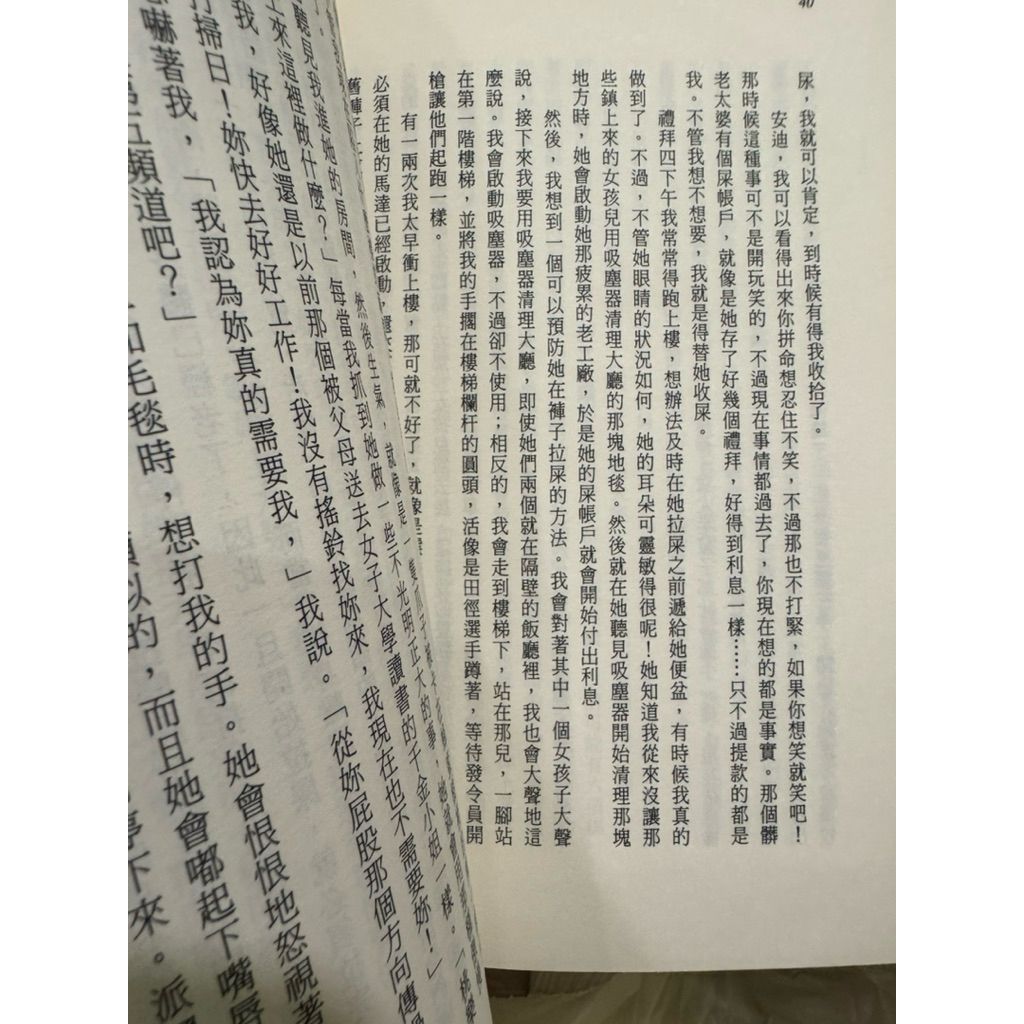 40
尿，我就可以肯定，到時候有得我收拾了。
安迪，我可以看得出來你拼命想忍住不笑，不過那也不打緊，如果你想笑就笑吧！
那時候這種事可不是開玩笑的，不過現在事情都過去了，你現在想的都是事實。那個髒
老太婆有個屎帳戶，就像是她存了好幾個禮拜，好得到利息一樣……只不過提款的都是
我。不管我想不想要，我就是得替她收屎。
禮拜四下午我常常得跑上樓，想辦法及時在她拉屎之前遞給她便盆，有時候我真的
做到了。不過，不管她眼睛的狀況如何，她的耳朵可靈敏得很呢！她知道我從來沒讓那
些鎮上來的女孩兒用吸塵器清理大廳的那塊地毯。然後就在她聽見吸塵器開始清理那塊
地方時，她會啟動她那疲累的老工廠，於是她的屎帳戶就會開始付出利息。
然後，我想到一個可以預防她在褲子拉屎的方法。我會對著其中一個女孩子大聲
說，接下來我要用吸塵器清理大廳，即使她們兩個就在隔壁的飯廳裡，我也會大聲地這
麼說。我會啟動吸塵器，不過卻不使用；相反的，我會走到樓梯下，站在那兒，一腳站
在第一階樓梯，並將我的手擱在樓梯欄杆的圓頭，活像是田徑選手蹲著，等待發令員開
槍讓他們起跑一樣。
有一兩次我太早衝上樓，那可就不好了，就像是
必須在她的馬達已經啟動，
舊褲子
每當我抓到她做一些不光明正大的事，
聽見我進她的房間，然後生氣，就像是一隻
上來這裡做什麼？」
我，好像她還是以前那個被父母送去女子大學讀書的千金小姐一樣。「
打掃日！妳快去好好工作！我沒有搖鈴找妳來，我現在也不需要妳！」
嚇著我，「我認為妳真的需要我，」我說。「從妳屁股那個方向傳
頻道吧？」
毛毯時，想打我的手。她會恨恨地怒視著
以的，而且她會嘟起下嘴唇
下來。派